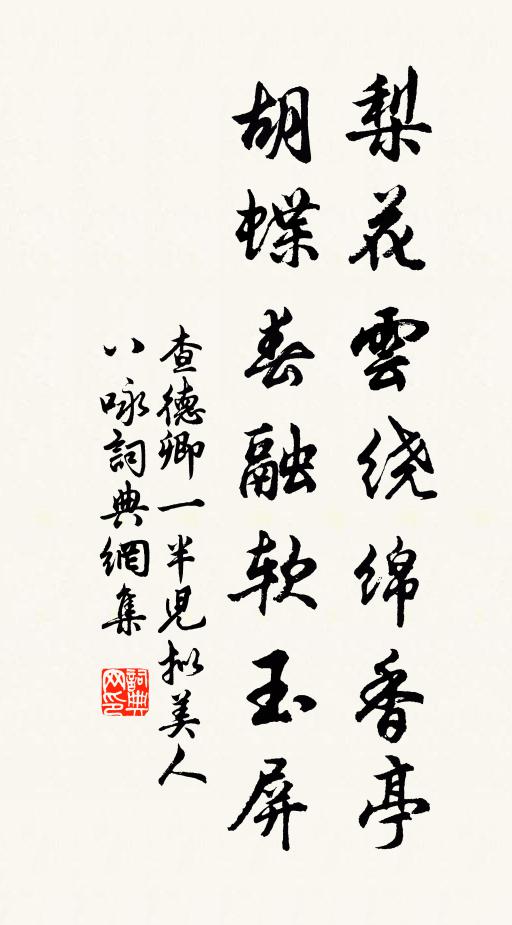 梨花雲绕绵香亭
胡蝶春融软玉屏
查德卿一半児拟美人
八咏詞典網集
詞典网印